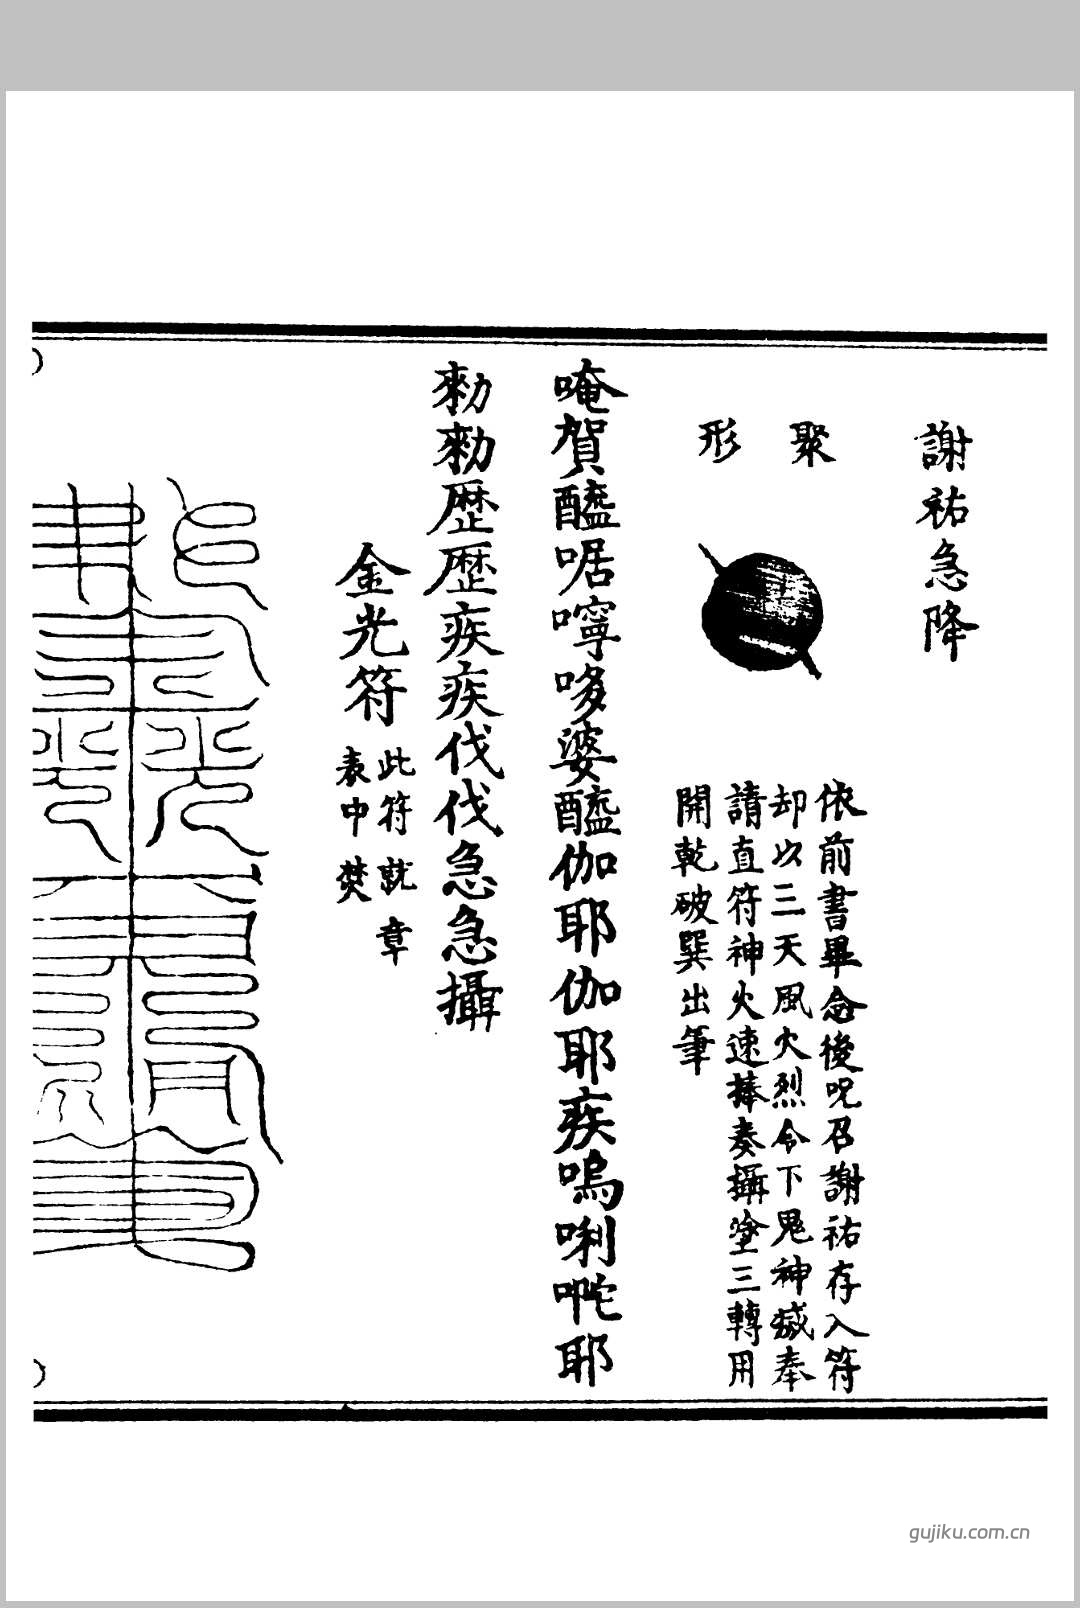 謝祐急降
聚
形
依前書畢念後呪召謝祐存入符
却以三天風火烈令下鬼神咸奉
請直符神火速捧奏攝塗三轉用
開乾破巽出筆
唵賀醯啒嚀哆婆醯伽耶伽耶疾嗚唎㗌耶
勑勑歷歷疾疾伐伐急急攝
金光符
此符就章
表中焚
gujiku.com.cn